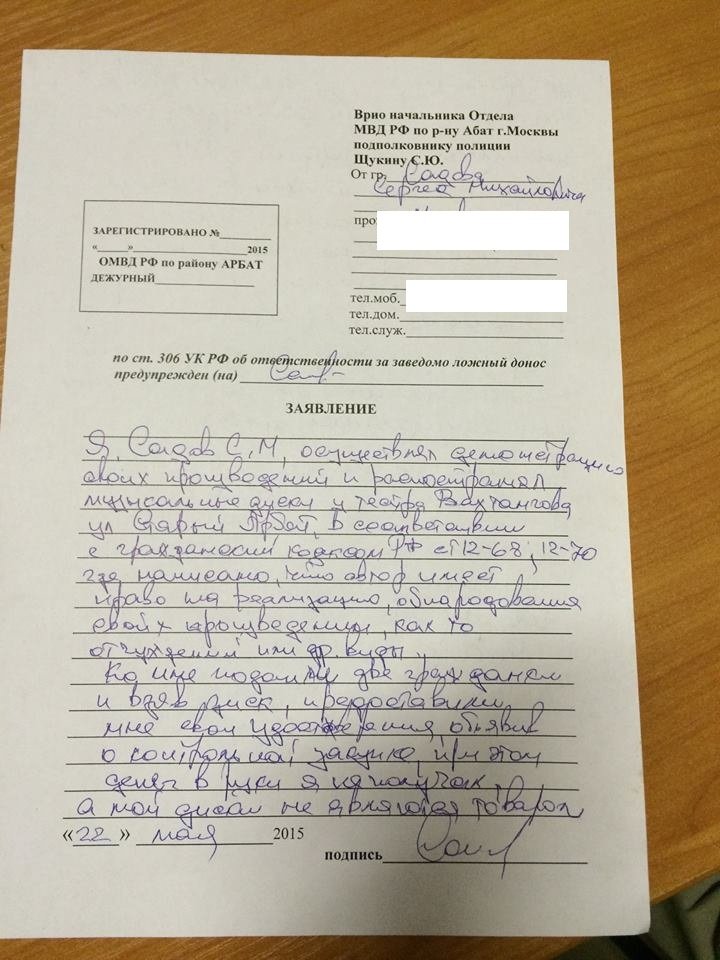 Врио начальника Отдела
МВД РФ по р-ну Абат г.Москвы
подполковнику полиции
Щукину С.Ю.
От гр. Садова
Сергея Михайловича
про
тел.моб.
тел.дом.
тел.служ.
ЗАРЕГИСТРИРОВАНО №
«____»____________2015
ОМВД РФ по району АРБАТ
ДЕЖУРНЫЙ
по ст. 306 УК РФ об ответственности за заведомо ложный донос
предупрежден (на)
ЗАЯВЛЕНИЕ
Я, Садов С.М, осуществлял демонстрацию
своих произведений и
музыкальные диски у театра Вахтангова
ул Старый Арбат, в соответствии
с кодексом РФ ст 12-68; 12-70
где написано, что автор имеет
право на реализацию, обнародования
своих произведений, как то
отчуждений или др. виды.
Ко мне подошли две гражданки
и взяв диск, предоставили
мне свои удостоверения, объявив
о контрольной закупке, при этом
деньги в руки я не получал,
а мои диски не являются товаром
«22» мая 2015
подпись